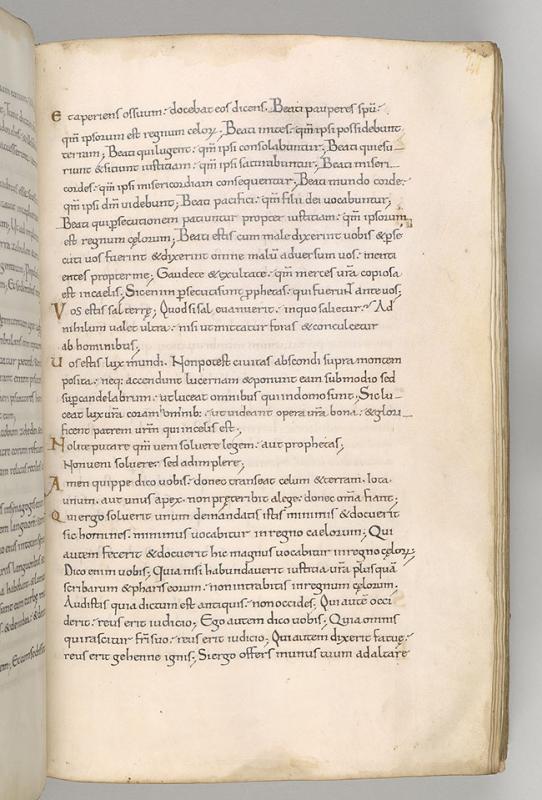 Et aperiens os suum· docebat eos dicens. Beati pauperes spū·
qm̄ ipsorum est regnum celoꝝ; Beati mites· qm̄ ipsi possidebunt
terram; Beati qui lugent· qm̄ ipsi consolabuntur; Beati qui esu-
riunt & sitiunt iustitiam· qm̄ ipsi saturabuntur; Beati miseri-
cordes· qm̄ ipsi misericordiam consequentur; Beati mundo corde·
qm̄ ipsi dm̄ uidebunt; Beati pacifici· qm̄ filii dei uocabuntur;
Beati qui ꝑsecutionem patiuntur propter iustitiam· qm̄ ipsorum
est regnum cęlorum; Beati estis cum male dixerint uobis & ꝑse
cuti uos fuerint & dixerint omne malū aduersum uos· menti
entes propter me; Gaudete & exultate· qm̄ merces urā copiosa
est in caelis; Sic enim ꝑsecuti sunt ꝓphetas· qui fuerunt ante uos;
Vos estis sal terrę; Quod si sal euanuerit· in quo salietur· Ad
nihilum ualet ultra· nisi ut mittatur foras & conculcetur
ab hominibus;
Uos estis lux mundi. Non potest ciuitas abscondi supra montem
posita· neq; accendunt lucernam & ponunt eam sub modio sed
suꝑ candelabrum· ut luceat omnibus qui in domo sunt; Sic lu-
ceat lux urā coram om̄ib:· ut uideant opera urā bona· & glori-
ficent patrem urm̄ qui in celis est;
Nolite putare qm̄ ueni soluere legem· aut prophetas;
Non ueni soluere· sed adimplere;
Amen quippe dico uobis· donec transeat celum & terram. Iota
unum. aut unus apex. non pręteribit a lege· donec om̄a fiant;
Qui ergo soluerit unum de mandatis istis minimis & docuerit
sic homines. minimus uocabitur in regno caelorum; Qui
autem fecerit & docuerit hic magnus uocabitur in regno cęloꝝ;
Dico enim uobis; Quia nisi habundauerit iustitia urā plus quā
scribarum & phariseorum· non intrabitis in regnum cęlorum.
Audistis quia dictum est antiquis· non occides; Qui autē occi
derit· reus erit iudicio; Ego autem dico uobis; Quia omnis
qui irascitur frī suo· reus erit iudicio; Qui autem dixerit fatue·
reus erit gehenne ignis; Si ergo offers munus tuum ad altare